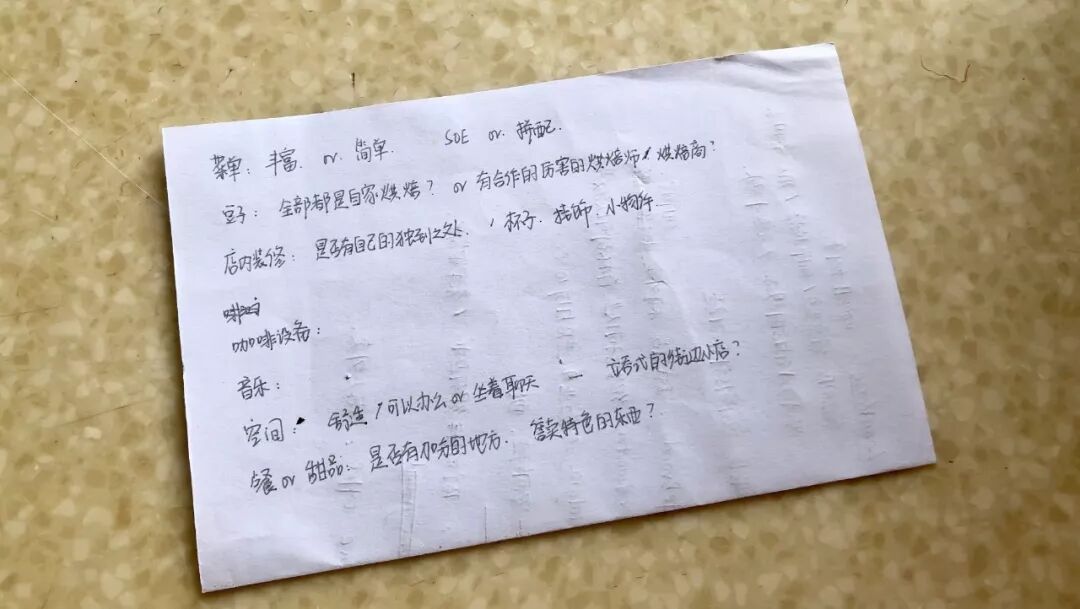 菜单: 丰富. or. 简单. SOE or. 拼配.
豆子: 全部都是自家烘焙? or 有合作的厉害的烘焙师/烘焙商?
店内装修: 是否有自己的独到之处. / 杯子. 挂饰. 小物件.
咖啡设备:
音乐:
空间: 舒适/可以办公 or 坐着聊天 — 立吞式的街边小店?
餐 or 甜品: 是否有加分的地方. 售卖特色的东西?